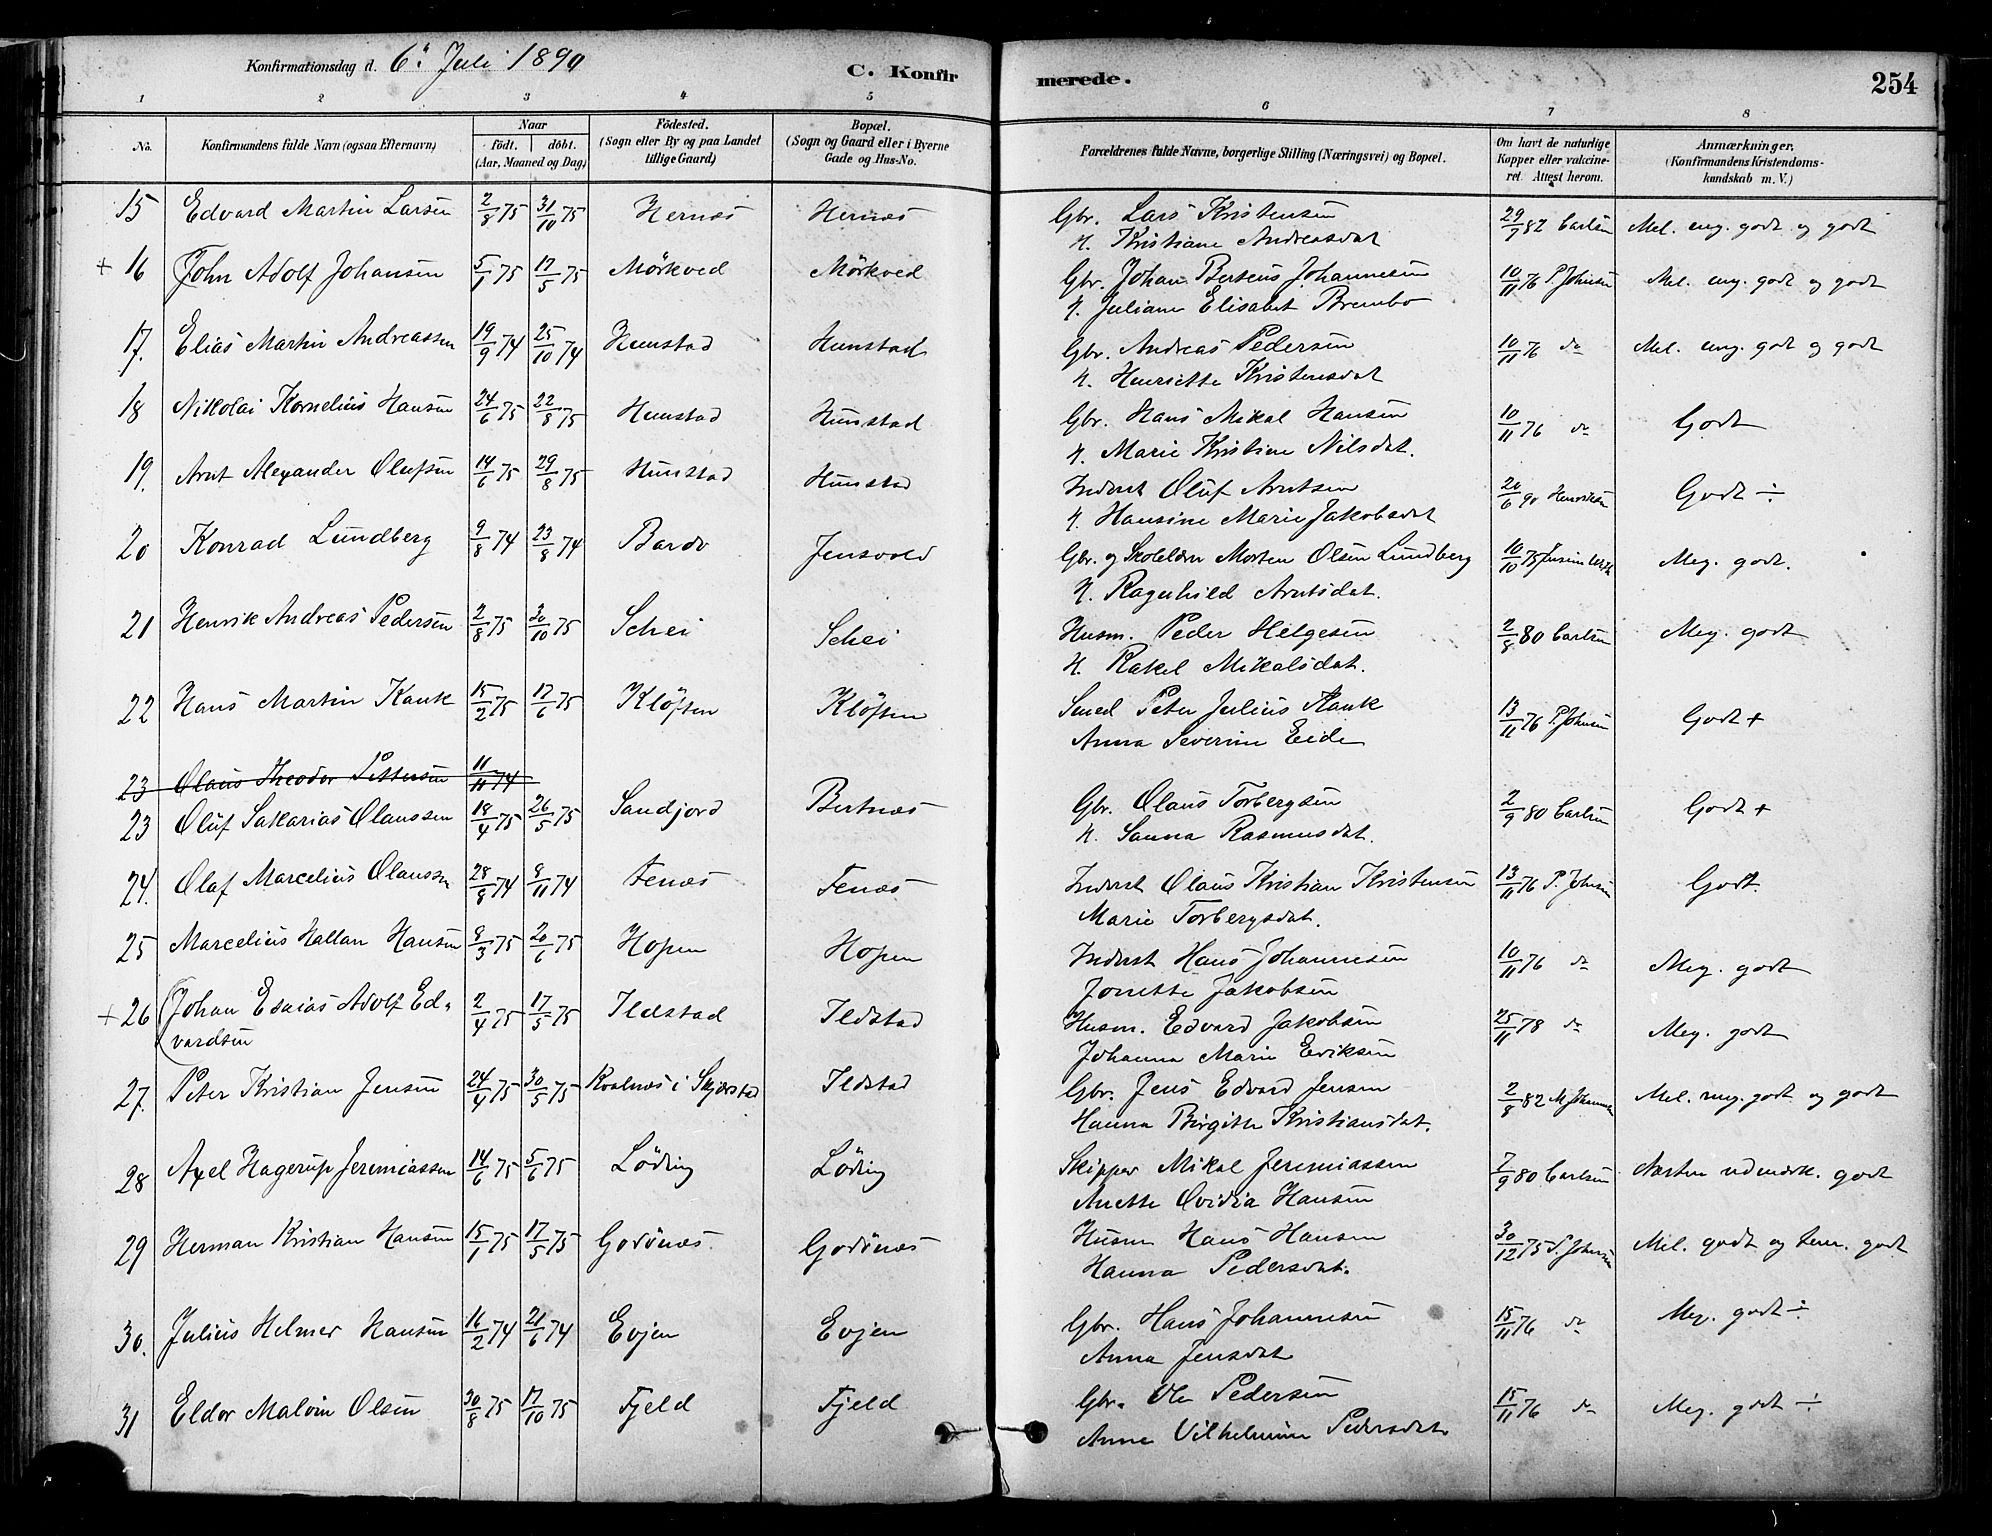 Konfirmationsdag d. 6. Juli 1890 C. Konfirmerede. 254
1 2 3 4 5 6 7 8
No. Konfirmandens fulde Navn (ogsaa Efternavn) Naar født. døbt. (Aar, Maaned og Dag) Fødested. (Sogn eller By og paa Landet tillige Gaard) Bopæl. (Sogn og Gaard eller i Byerne Gade og Hus-No. Forældrenes fulde Navne, borgerlige Stilling (Næringsvei) og Bopæl. Om havt de naturlige Kopper eller vakcineret. Attest herom. Anmærkninger. (Konfirmandens Kristendomskundskab m. V.)
15 Edvard Martin Larsen 2/8 75 31/10 75 Hernæs Hernæs Gbr. Lars Kristensen 29/9 82 Carlsen Mel. mg. godt og godt
H. Kristiane Andreasdat
+ 16 John Adolf Johansen 5/1 75 17/5 75 Mörkved Mörkved Gbr. Johan Berteus Johannesen 10/11 76 P. Johnsen Mel. mg. godt og godt
H. Juliane Elisabet Brembo
17. Elias Martin Andreassen 19/9 74 25/10 74 Hunstad Hunstad Gbr. Andreas Pedersen 10/11 76 do Mel. mg. godt og godt
H. Henriette Kristensdat
18 Nikolai Kornelius Hansen 24/6 75 22/8 75 Hunstad Hunstad Gbr. Hans Mikal Hansen 10/11 76 do Godt
H. Marie Kristine Nilsdat.
19. Arnt Alexander Olufsen 14/6 75 29/8 75 Hunstad Hunstad Inderst Oluf Arntsen 20/6 90 Henriksen Godt ÷
H. Hansine Marie Jakobsdat
20 Konrad Lundberg 9/8 74 23/8 74 Bardo Jensvold Gbr. og Skolelærer Morten Olsen Lundberg 10/10 75 Meg. godt.
H. Ragnhild Arntsdat.
21 Henrik Andreas Pedersen 2/8 75 30/10 75 Schei Schei Husm. Peder Helgesen 2/8 80 Carlsen Meg. godt
H. Rakel Mikalsdat.
22 Hans Martin Kank 15/2 75 17/6 75 Klöften Klöften Smed Peter Julius Kank 13/11 76 P. Johnsen Godt +
Anna Severine Eide
23 Olaus Theodor Pettersen 11/11 74
23 Oluf Sakarias Olaussen 18/4 75 26/5 75 Sandjord Bertnæs Gbr. Olaus Torbergsen 2/9 80 Carlsen Godt +
H. Sanna Rasmusdat.
24. Olaf Marcelius Olaussen 28/8 74 8/11 74 Fenæs Fenæs Inderst Olaus Kristian Kristensen 13/11 76 P. Johnsen Godt.
Marie Torbergsdat.
25 Marcelius Hallan Hansen 8/3 75 20/6 75 Hopen Hopen Inderst Hans Johannesen 10/11 76 do Meg. godt
Jonette Jakobsen
+ 26 Johan Esaias Adolf Ed- 2/4 75 17/5 75 Ildstad Ildstad Husm. Edvard Jakobsen 25/11 78 do Meg. godt
vardsen Johanna Marie Eriksen
27. Peter Kristian Jensen 24/4 75 30/5 75 Kvalnæs i Skjærstad Ildstad Gbr. Jens Edvard Jensen 2/8 82 M. Johannesen Mel. mg. godt og godt
Hanna Birgitte Kristiansdat.
28 Axel Hagerup Jeremiassen 14/6 75 5/6 75 Löding Löding Skipper Mikal Jeremiassen 7/9 80 Carlsen Næsten udmærk. godt
Anette Ovidia Hansen
29 Herman Kristian Hansen 15/1 75 17/5 75 Godönæs. Godönæs Husm Hans Hansen 30/12 75 P. Johnsen Mel. godt og temm. godt
Hanna Pedersdat.
30. Julius Helmer Hansen 16/2 74 21/6 74 Evjen Evjen Gbr. Hans Johannesen 15/11 76 do Meg. godt ÷
Anna Jensdat
31 Eldor Malvin Olsen 30/8 75 17/10 75 Fjeld Fjeld Gbr. Ole Pedersen 15/11 76 do Meg. godt ÷
Anne Vilhelmine Pedersdat.